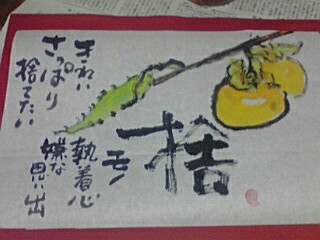 きれいさっぱり
捨てたい
捨
モノ
執着心
嫌な思い出